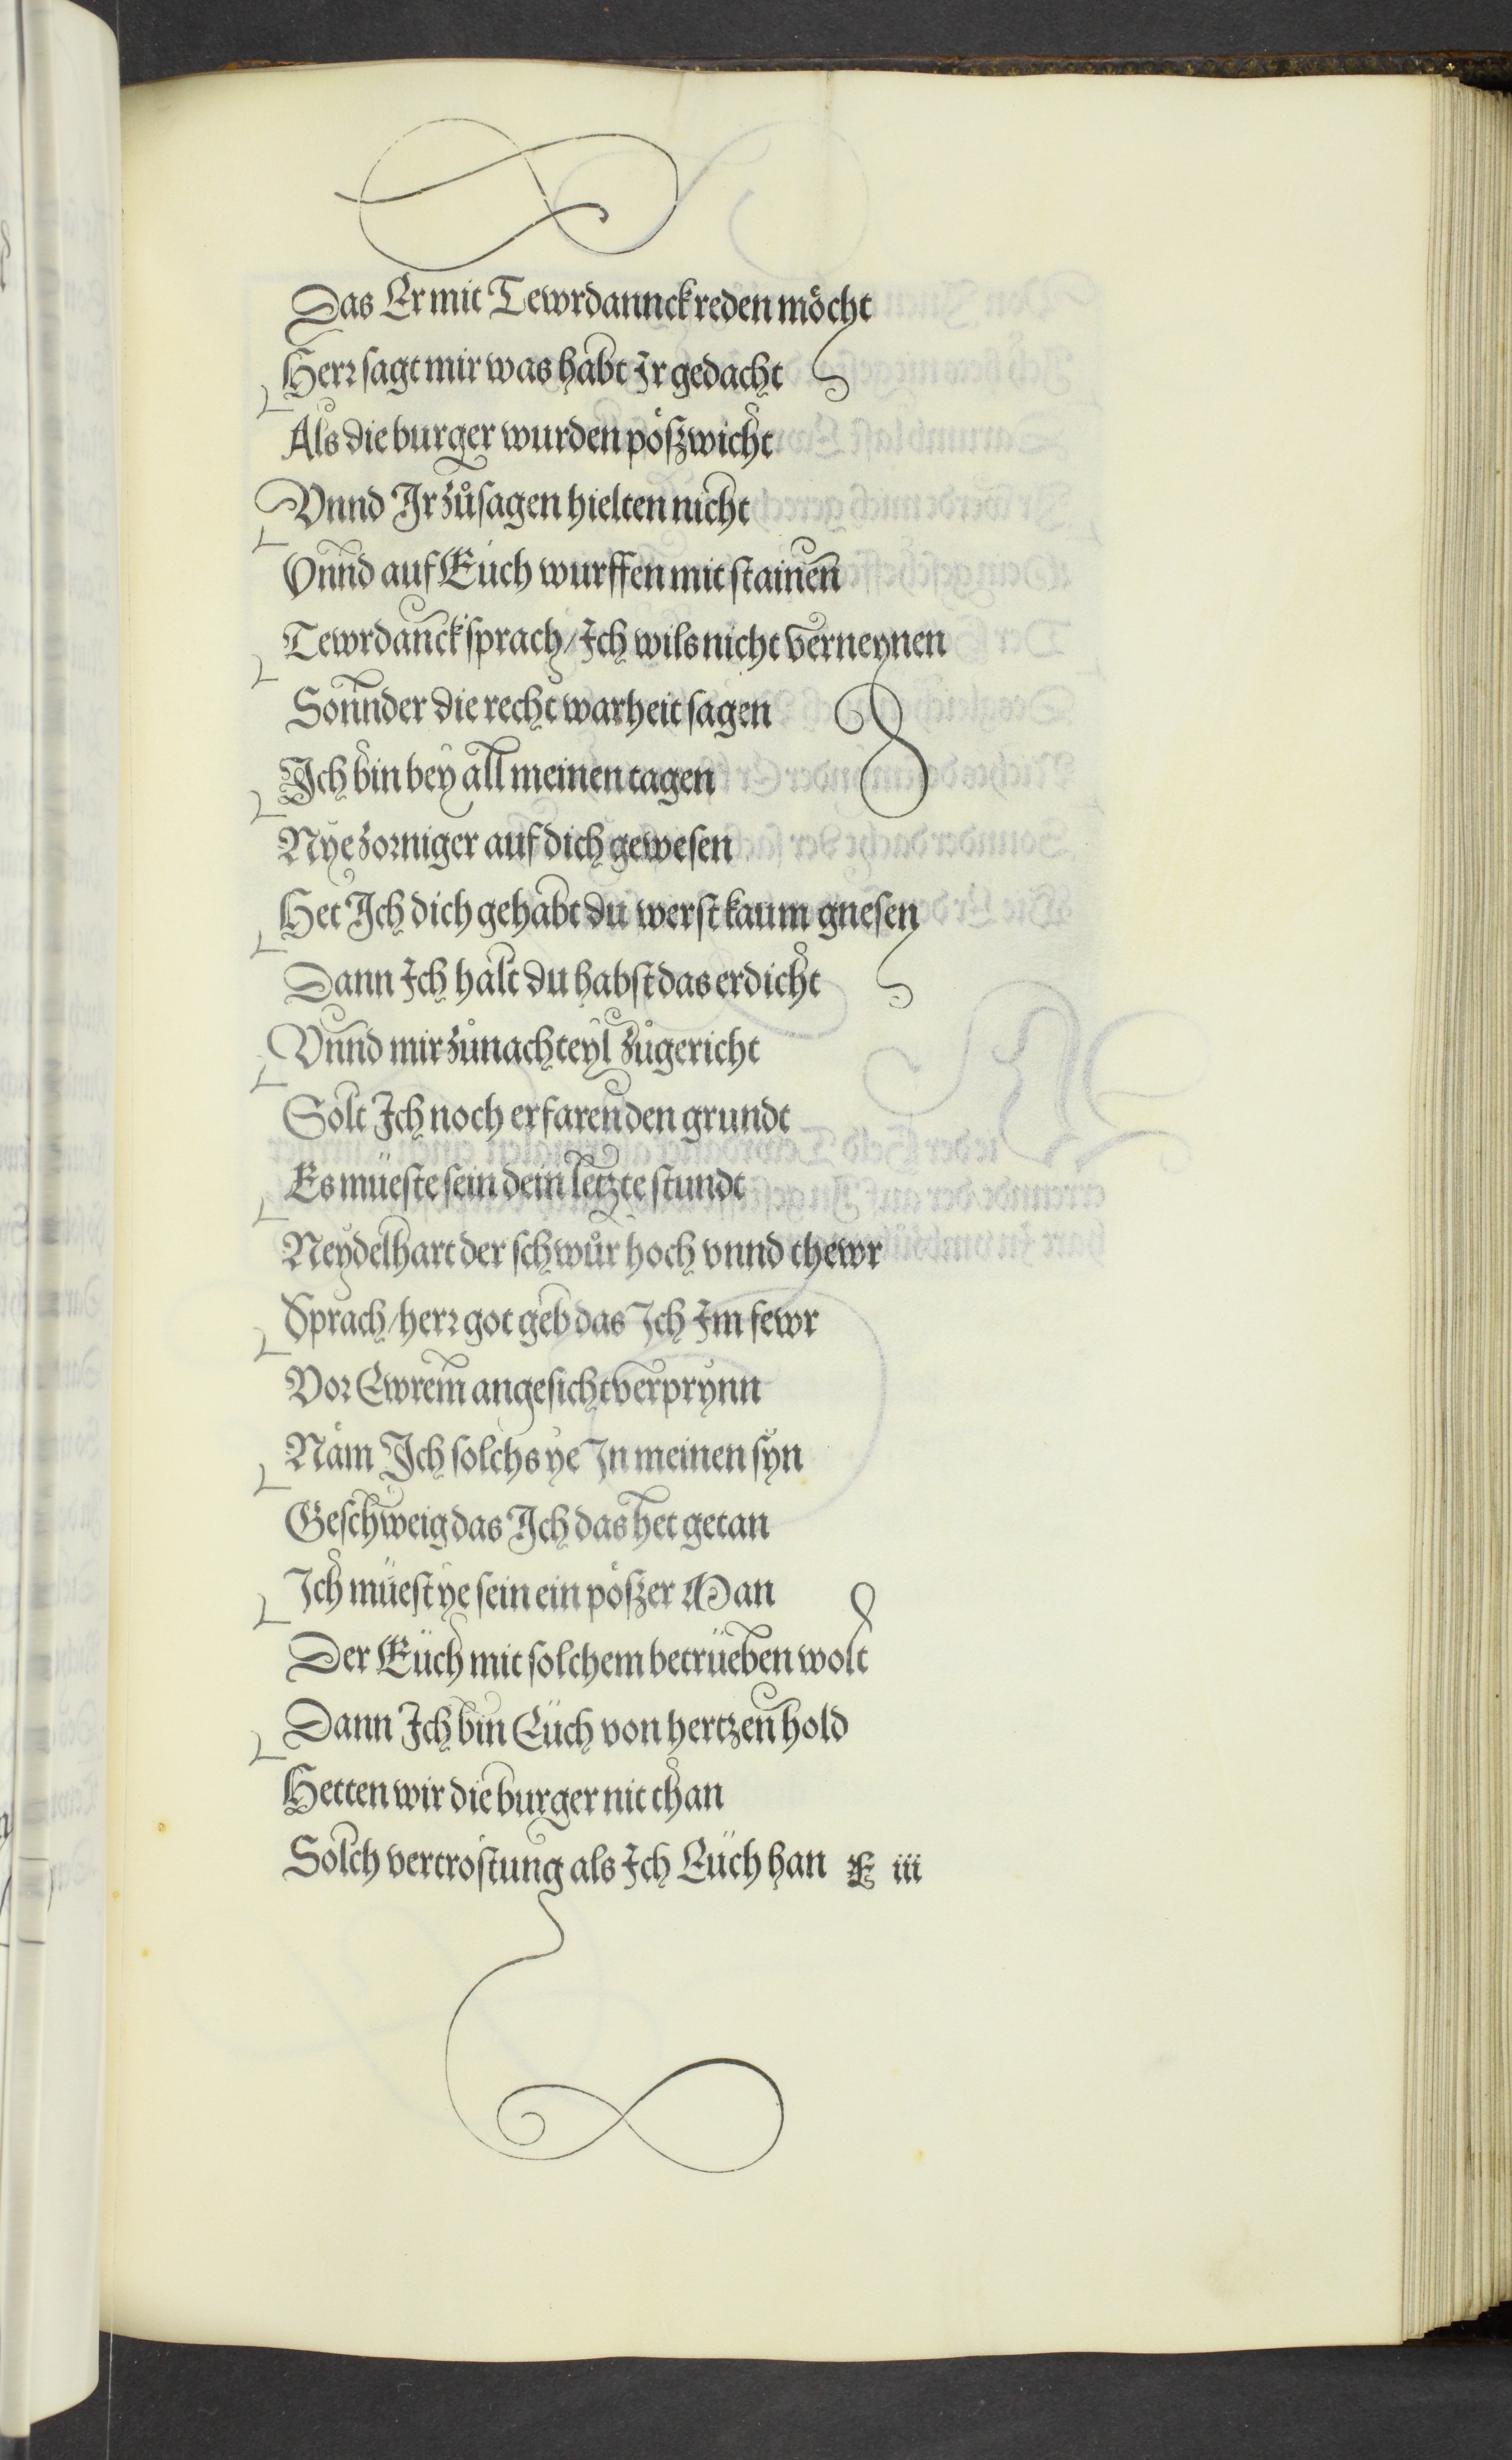 Das Er mit Tewrdannck reden möcht
Herr sagt mir was habt Ir gedacht
Als die burger wurden pößwicht
Vnnd Ir zůsagen hielten nicht
Vnnd auf Euch wurffen mit stainen
Tewrdanck sprach/Ich wils nicht verneynen
Sonnder die recht warheit sagen
Ich bin bey all meinen tagen
Nye zorniger auf dich gewesen
Het Ich dich gehabt du werst kaum gnesen
Dann Ich halt du habst das erdicht
Vnnd mir zů nachteyl zůgericht
Solt Ich noch erfaren den grundt
Es müeste sein dein letzte stundt
Neydelhart der schwůr hoch vnnd thewr
Sprach/herr got geb das Ich Im fewr
Vor Ewrem angesicht verprynn
Näm Ich solchs ye In meinen syn
Geschweig das Ich das het getan
Ich müest ye sein ein pößzer Man
Der Eüch mit solchem betrüeben wolt
Dann Ich bin Eüch von hertzen hold
Hetten wir die burger nit than
Solch vertrostung als Ich Eüch han E iii